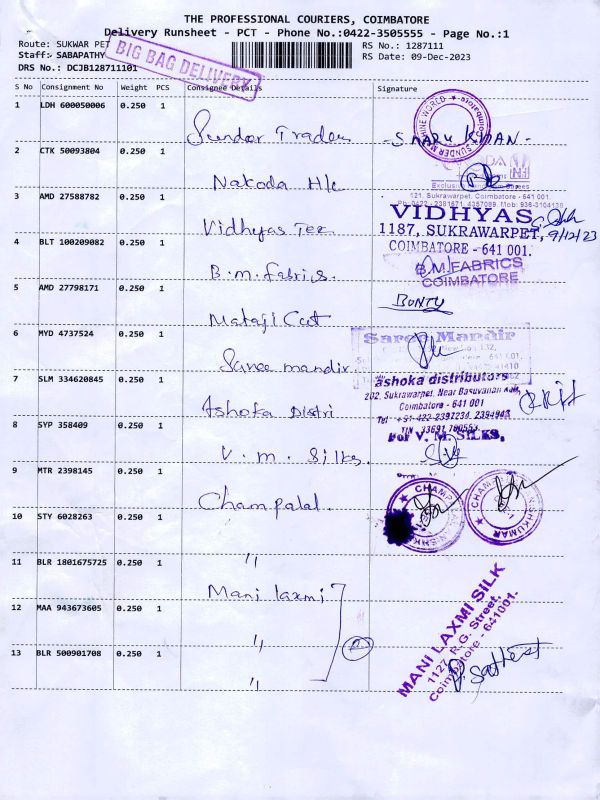 THE PROFESSIONAL COURIERS, COIMBATORE
Delivery Runsheet - PCT - Phone No.:0422-3505555 - Page No.:1
Route: SUKWAR PET
RS No.: 1287111
Staff: SABAPATHY
RS Date: 09-Dec-2023
DRS No.: DCJB128711101
BIG BAG DELIVERY
S No Consignment No Weight PCS Consignee Details Signature
1 LDH 600050006 0.250 1
Sundor Trades
SUNDER MACHINE WORLD
Coimbatore
2 CTK 50093804 0.250 1
Nakoda H/c
121, Sukrawarpet, Coimbatore - 641 001.
3 AMD 27588782 0.250 1
Vidhyas Tex
VIDHYAS
1187, SUKRAWARPET, 9/12/23
COIMBATORE - 641 001.
4 BLT 100209082 0.250 1
B.m.fabrics.
B.M.FABRICS
COIMBATORE
5 AMD 27798171 0.250 1
Mataji Cut
BONTY
6 MYD 4737524 0.250 1
Saree mandir
Saree Mandir
7 SLM 334620845 0.250 1
Ashoka Distri
ashoka distributors
202, Sukrawarpet, Near Basuvanan Koil,
Coimbatore - 641 001
8 SYP 358409 0.250 1
V.m. Silks.
For V. M. SILKS,
9 MTR 2398145 0.250 1
Champalal.
10 STY 6028263 0.250 1
"
11 BLR 1801675725 0.250 1
Mani laxmi
12 MAA 943673605 0.250 1
"
13 BLR 500901708 0.250 1
"
MANI LAXMI SILK
1127, R.G. Street,
Coimbatore - 641001.